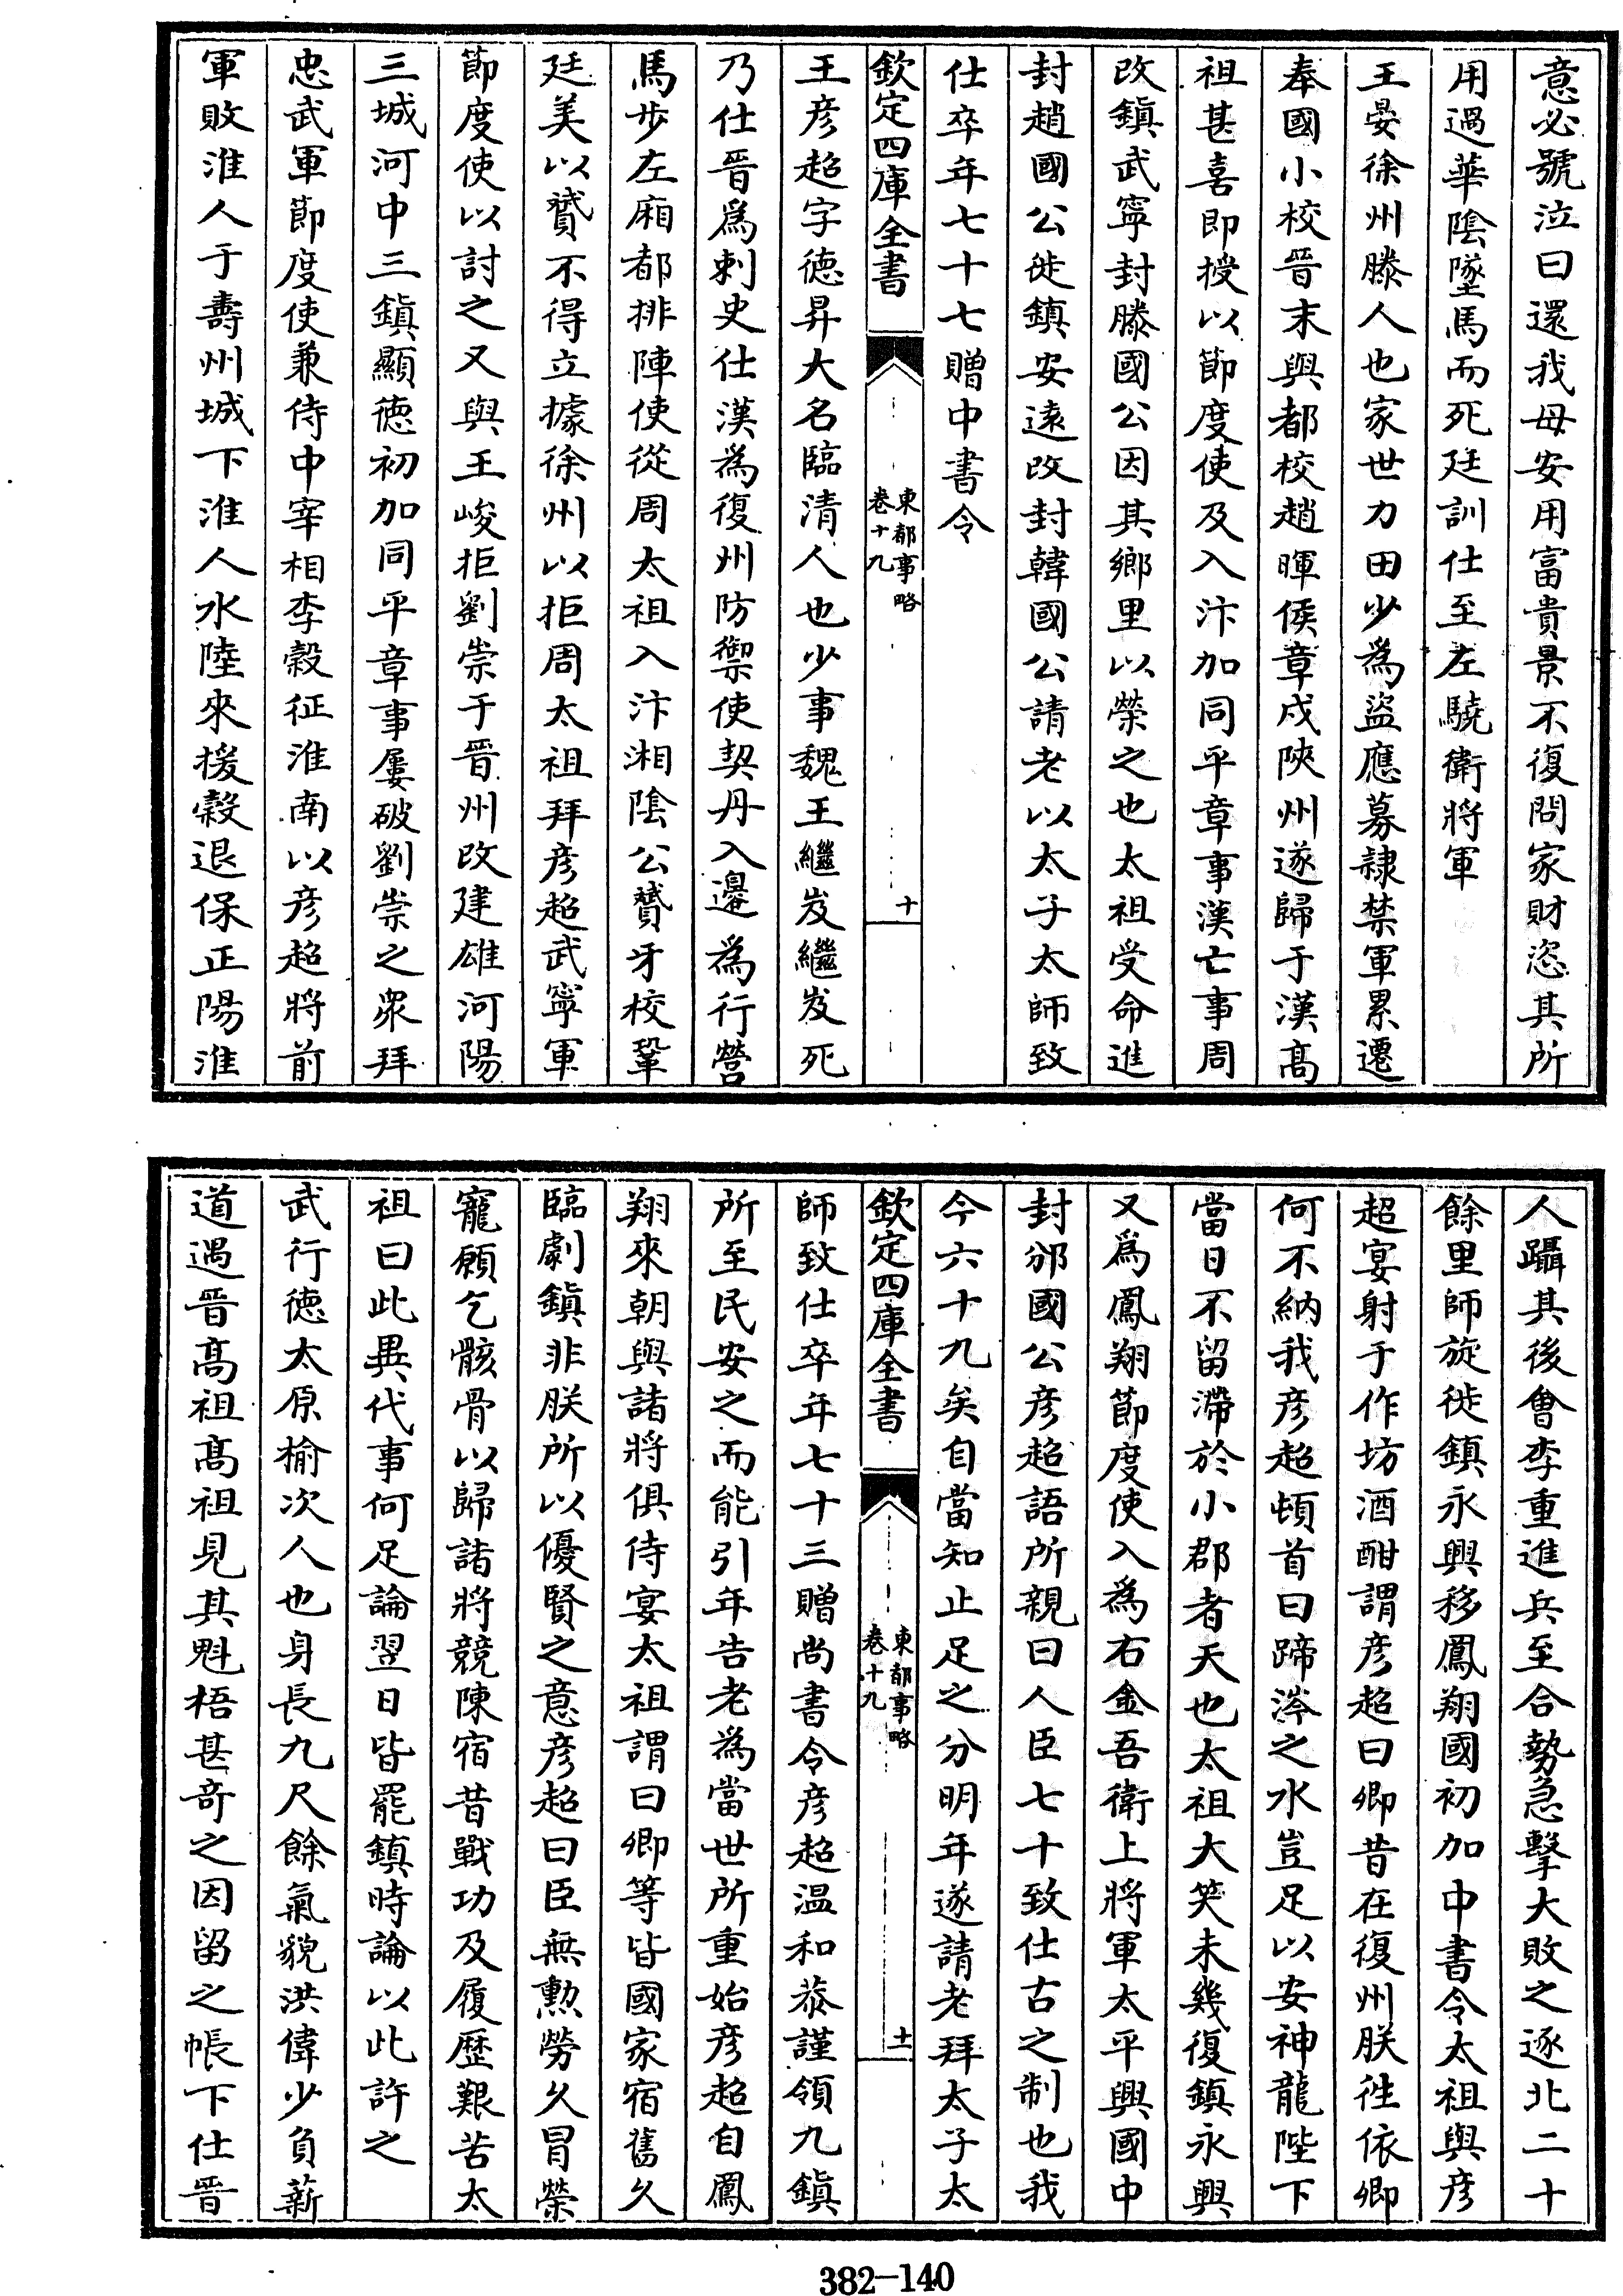 意必號泣曰還我母安用富貴景不復問家財恣其所
用過華陰墜馬而死廷訓仕至左驍衛將軍
王晏徐州滕人也家世力田少為盜應募隷禁軍累遷
奉國小校晉末與都校趙暉侯章戍陜州遂歸于漢髙
祖甚喜即授以節度使及入汴加同平章事漢亡事周
改鎮武寧封滕國公因其鄉里以榮之也太祖受命進
封趙國公徙鎮安遠改封韓國公請老以太子太師致
仕卒年七十七贈中書令
欽定四庫全書
東都事略
卷十九
十
王彦超字徳昇大名臨清人也少事魏王繼岌繼岌死
乃仕晉為刺史仕漢為復州防禦使契丹入邉為行營
馬步左廂都排陣使從周太祖入汴湘陰公贇牙校鞏
廷美以贇不得立據徐州以拒周太祖拜彦超武寧軍
節度使以討之又與王峻拒劉崇于晉州改建雄河陽
三城河中三鎮顯徳初加同平章事屢破劉崇之衆拜
忠武軍節度使兼侍中宰相李穀征淮南以彦超將前
軍敗淮人于壽州城下淮人水陸來援穀退保正陽淮
人躡其後㑹李重進兵至合勢急擊大敗之逐北二十
餘里師旋徙鎮永興移鳳翔國初加中書令太祖與彦
超宴射于作坊酒酣謂彦超曰卿昔在復州朕徃依卿
何不納我彦超頓首曰蹄涔之水豈足以安神龍陛下
當日不留滯於小郡者天也太祖大笑未幾復鎮永興
又為鳳翔節度使入為右金吾衛上將軍太平興國中
封邠國公彦超語所親曰人臣七十致仕古之制也我
今六十九矣自當知止足之分明年遂請老拜太子太
欽定四庫全書
東都事略
卷十九
十一
師致仕卒年七十三贈尚書令彦超温和恭謹領九鎮
所至民安之而能引年告老為當世所重始彦超自鳳
翔來朝與諸將俱侍宴太祖謂曰卿等皆國家宿舊久
臨劇鎮非朕所以優賢之意彦超曰臣無勲勞久冒榮
寵願乞骸骨以歸諸將競陳宿昔戰功及履歴艱苦太
祖曰此異代事何足論翌日皆罷鎮時論以此許之
武行徳太原榆次人也身長九尺餘氣貌洪偉少負薪
道遇晉髙祖髙祖見其魁梧甚竒之因留之帳下仕晉
382-140